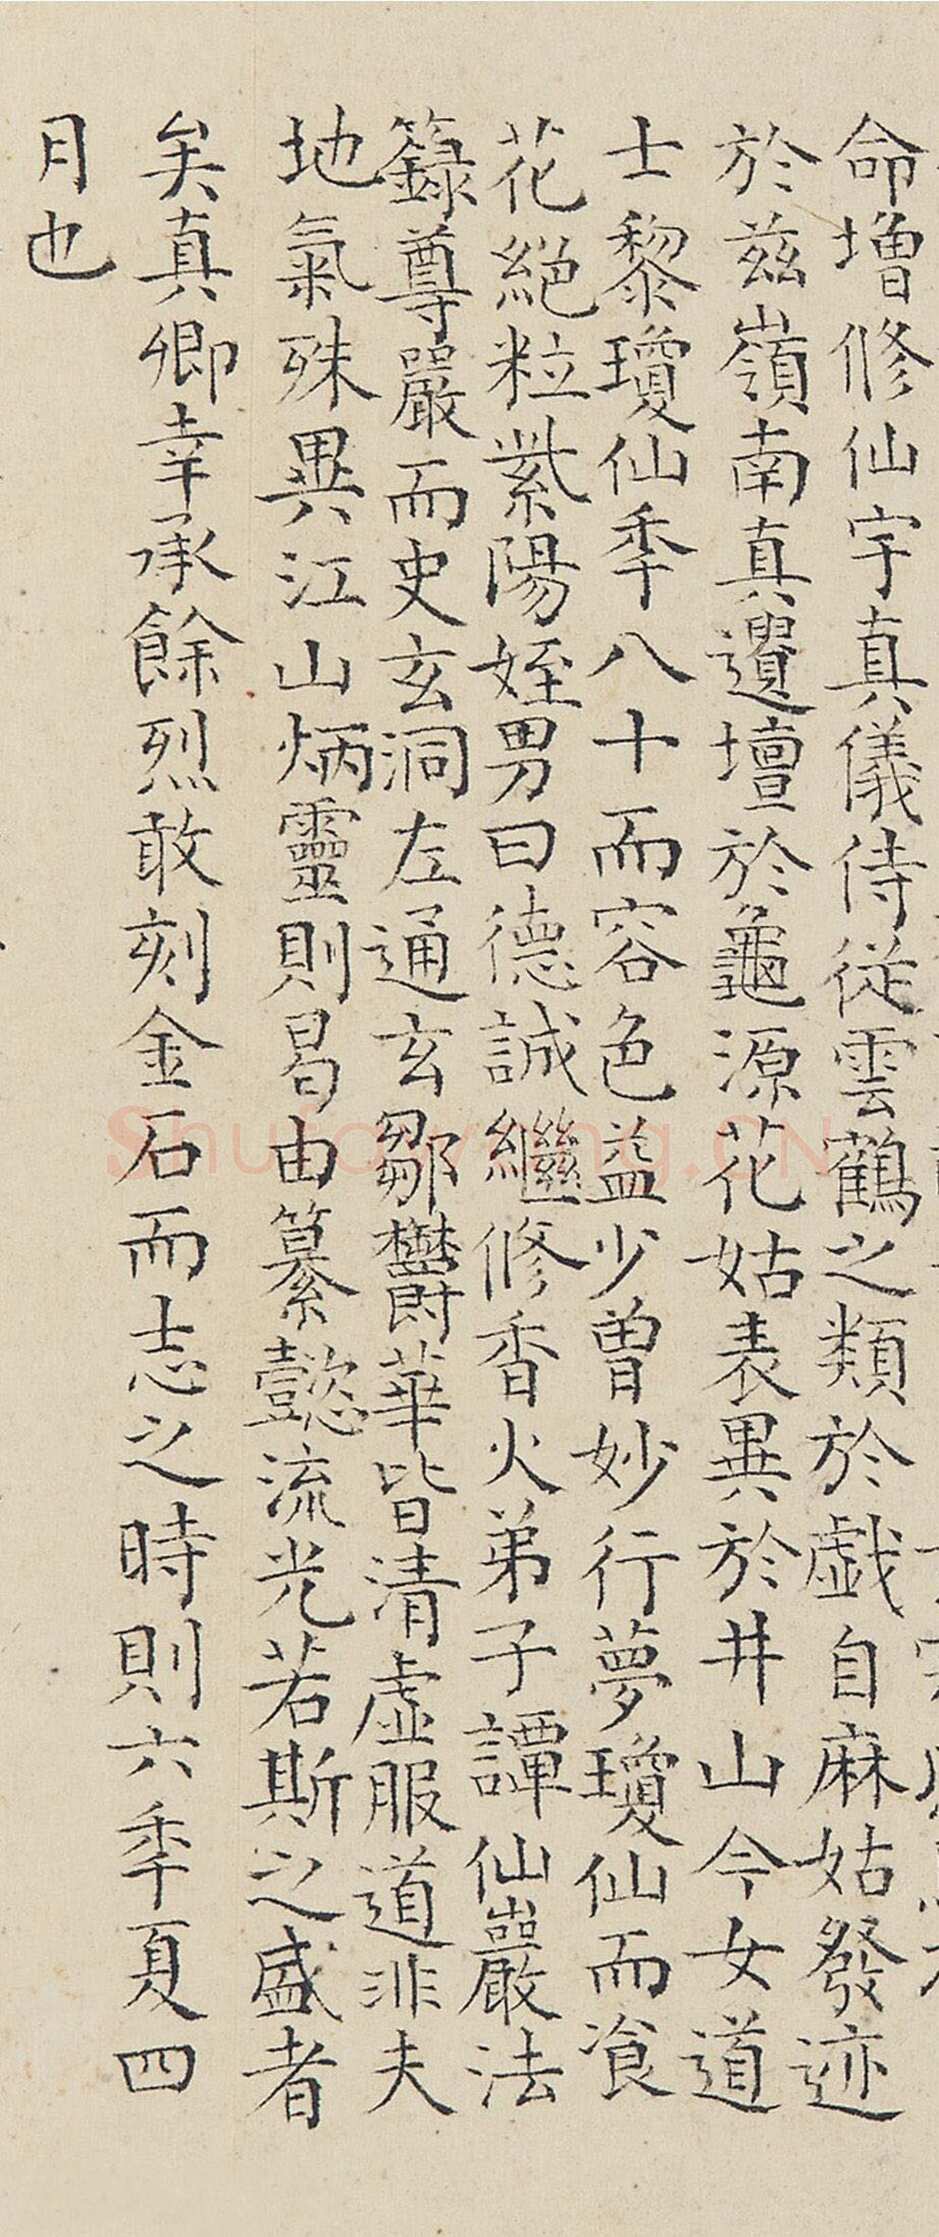 命增修仙宇真儀侍従雲鶴之類於戯自麻姑發迹
於兹嶺南真遺壇於龜源花姑表異於井山今女道
士黎瓊仙秊八十而容色益少曽妙行夢瓊仙而飡
花絕粒紫陽姪男曰德誠繼修香火弟子譚仙巖法
籙尊嚴而史玄洞左通玄鄒欝華皆清虛服道非夫
地氣殊異江山炳靈則曷由纂懿流光若斯之盛者
矣真卿幸承餘烈敢刻金石而志之時則六秊夏四
月也
Shufa
.CN